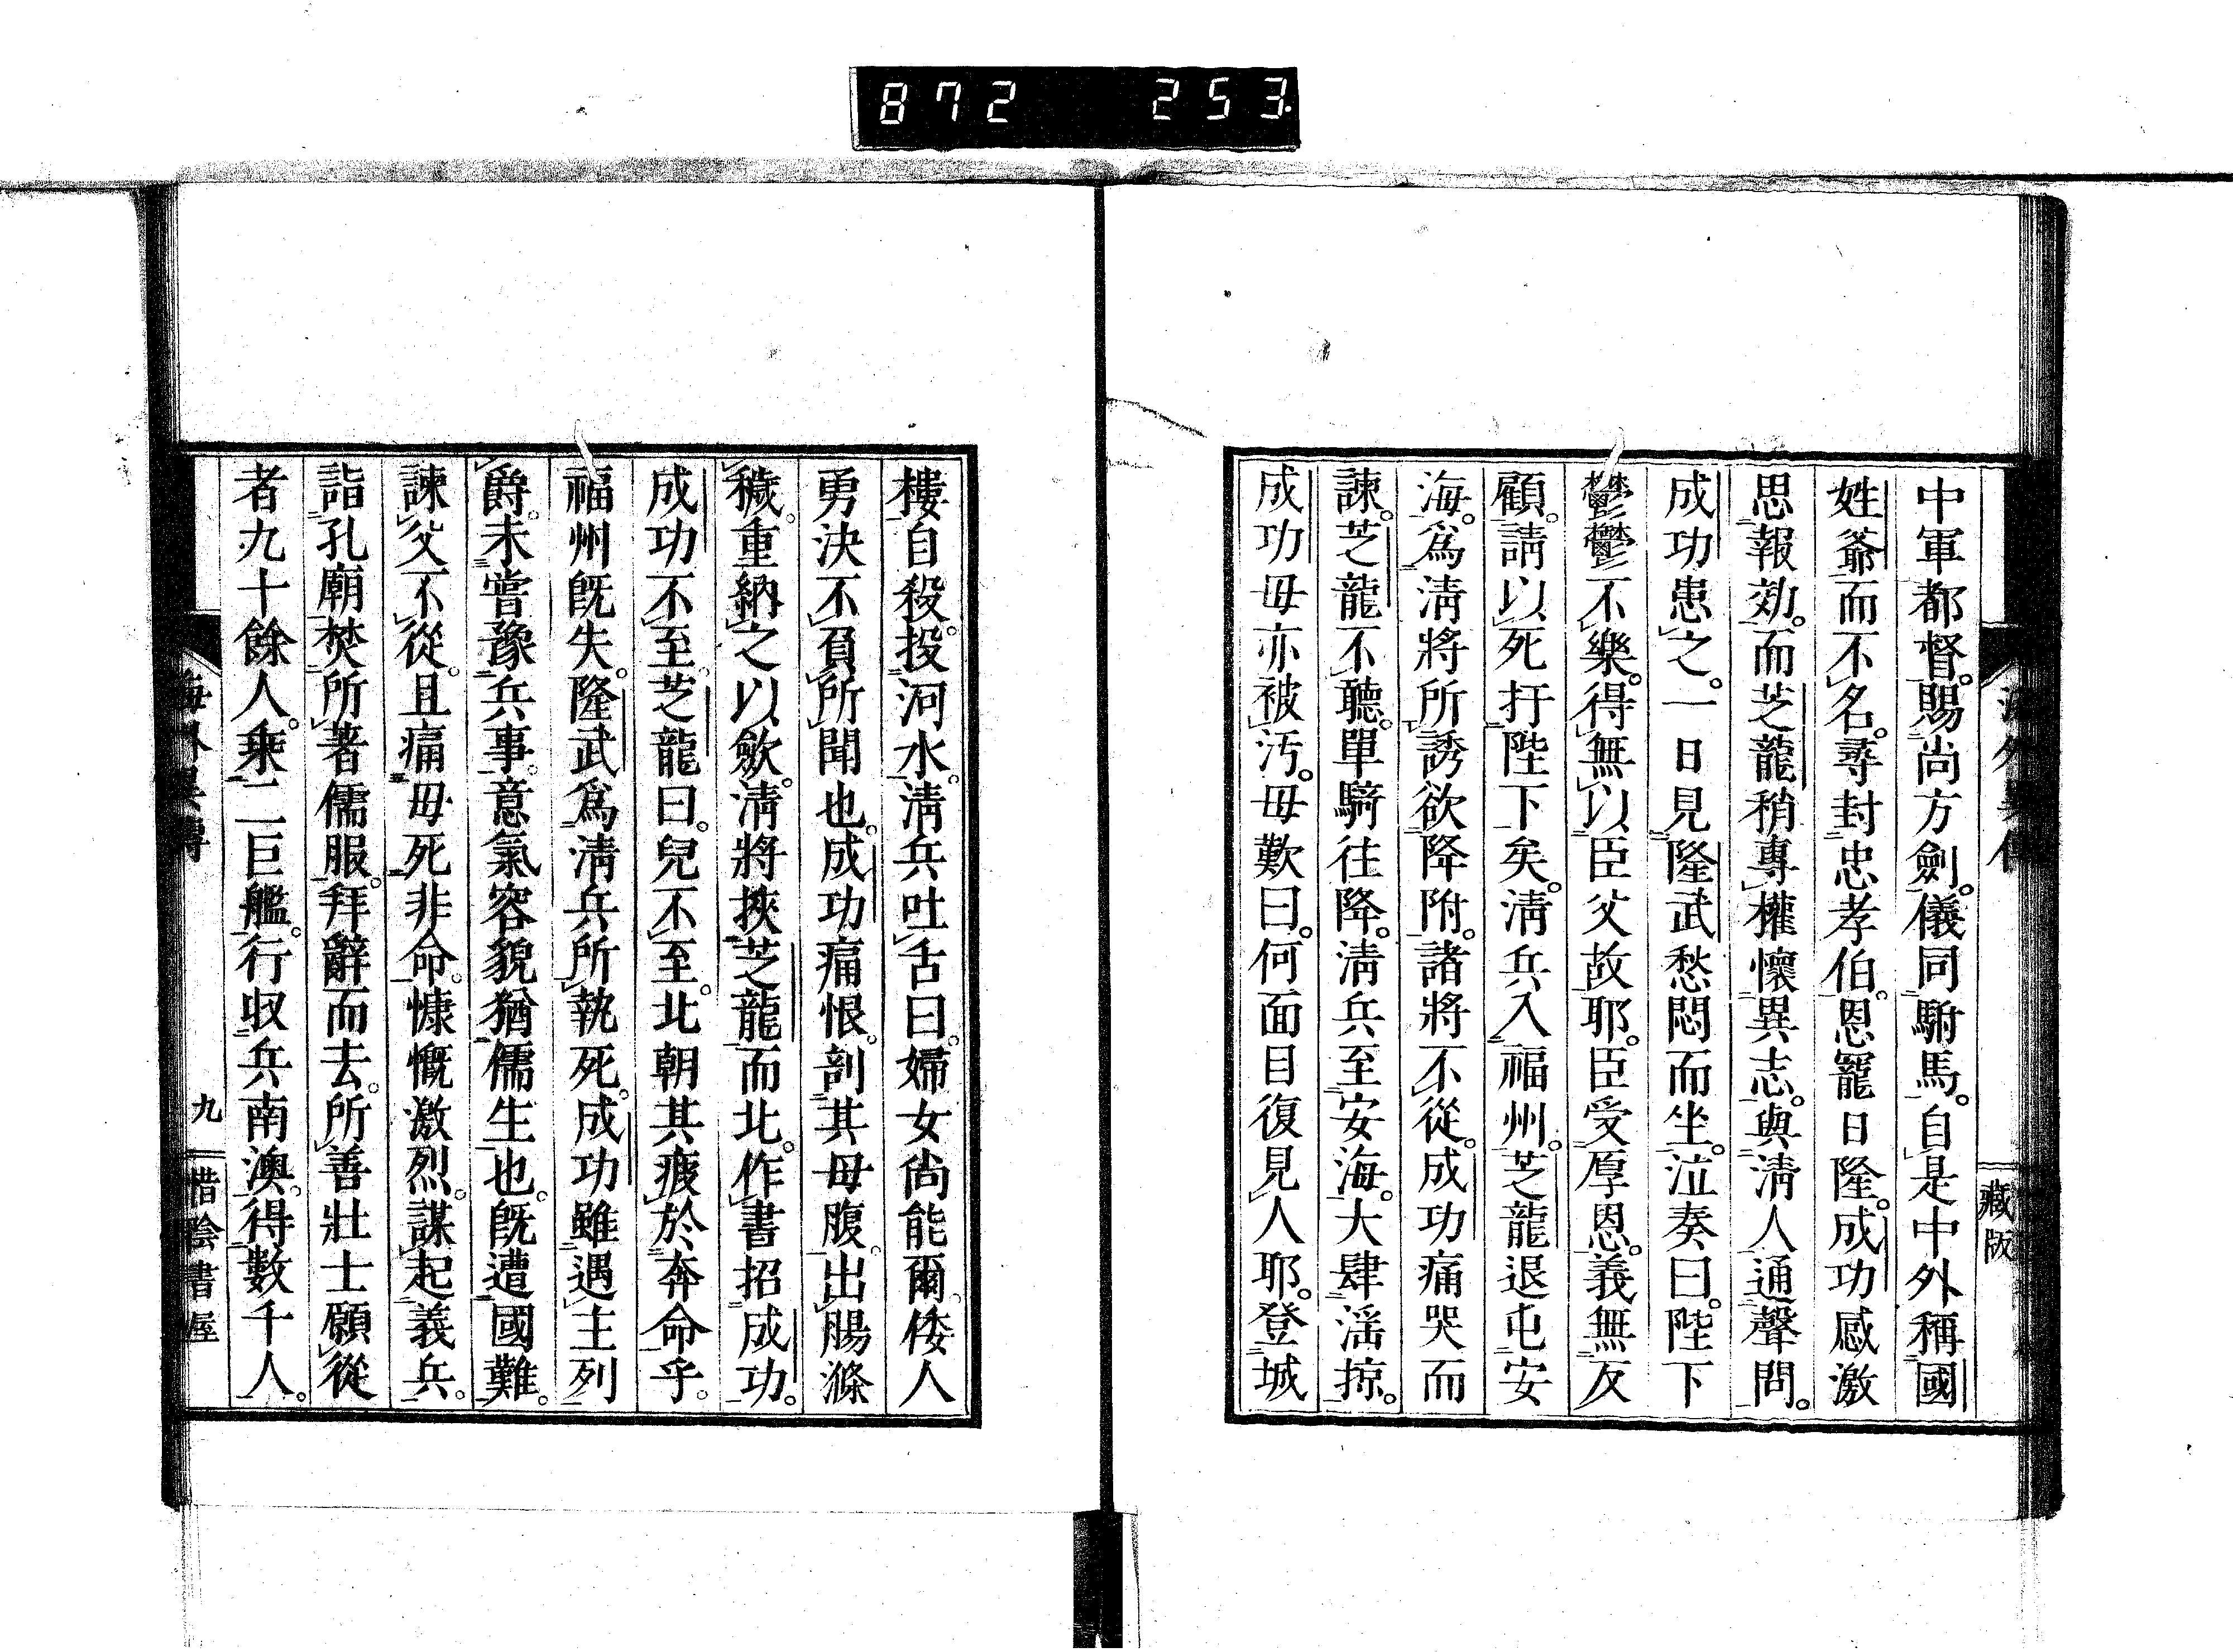 872 253.
海外異傳
藏版
中軍都督。賜尚方劍。儀同駙馬。自是中外稱國
姓爺而不名。尋封忠孝伯。恩寵日隆。成功感激
思報効。而芝龍稍專權懷異志。與淸人通聲問。
成功患之。一日見隆武愁悶而坐。泣奏曰。陛下
鬱鬱不樂。得無以臣父故耶。臣受厚恩。義無反
顧。請以死扞陛下矣。淸兵入福州。芝龍退屯安
海。爲淸將所誘欲降附。諸將不從。成功痛哭而
諫。芝龍不聽。單騎往降。淸兵至安海。大肆淫掠。
成功母亦被汚。母歎曰。何面目復見人耶。登城
樓自殺。投河水。淸兵吐舌曰。婦女尙能爾。倭人
勇決不負所聞也。成功痛恨。剖其母腹。出腸滌
穢。重納之以斂。淸將挾芝龍而北。作書招成功。
成功不至。芝龍曰。兒不至。北朝其疲於奔命乎。
福州既失。隆武爲淸兵所執死。成功雖遇主列
爵。未嘗豫兵事。意氣容貌猶儒生也。旣遭國難。
諫父不從。且痛母死非命。慷慨激烈。謀起義兵。
詣孔廟焚所著儒服。拜辭而去。所善壯士願從
者九十餘人。乘二巨艦。行収兵南澳。得數千人。
海外異傳
九
惜陰書屋